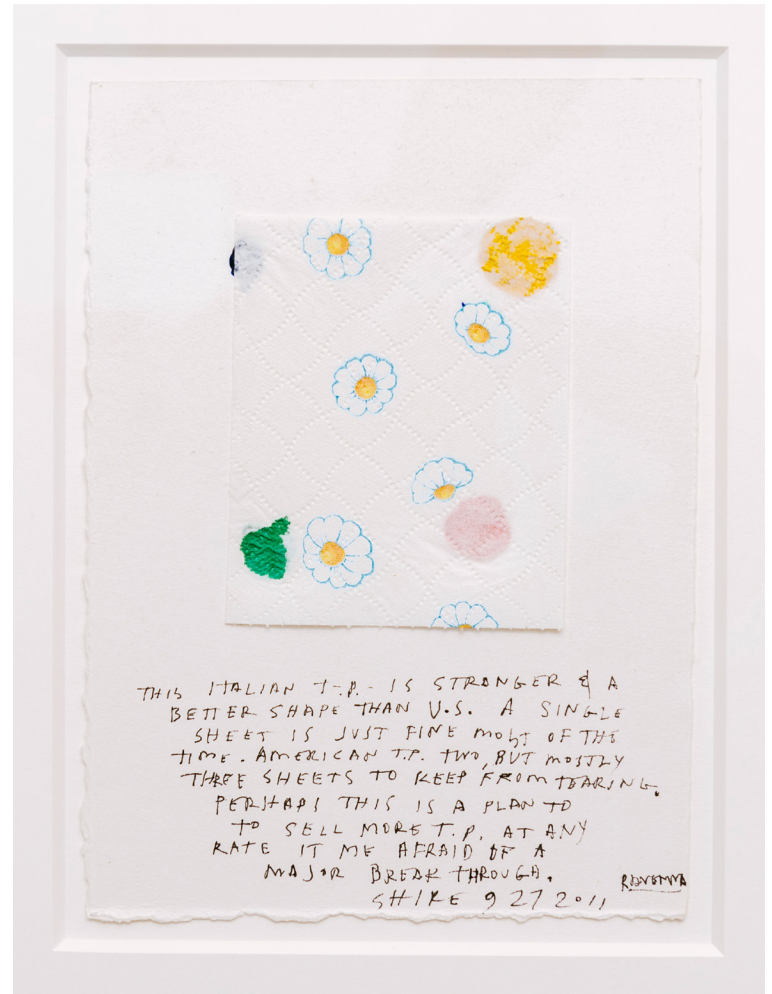 THIS ITALIAN T.P. IS STRONGER & A
BETTER SHAPE THAN U.S. A SINGLE
SHEET IS JUST FINE MOST OF THE
TIME. AMERICAN T.P. TWO, BUT MOSTLY
THREE SHEETS TO KEEP FROM TEARING.
PERHAPS THIS IS A PLAN TO
TO SELL MORE T.P. AT ANY
RATE IT ME AFRAID OF A
MAJOR BREAK THROUGH.
RAVENNA
SHIRE 9 27 2011